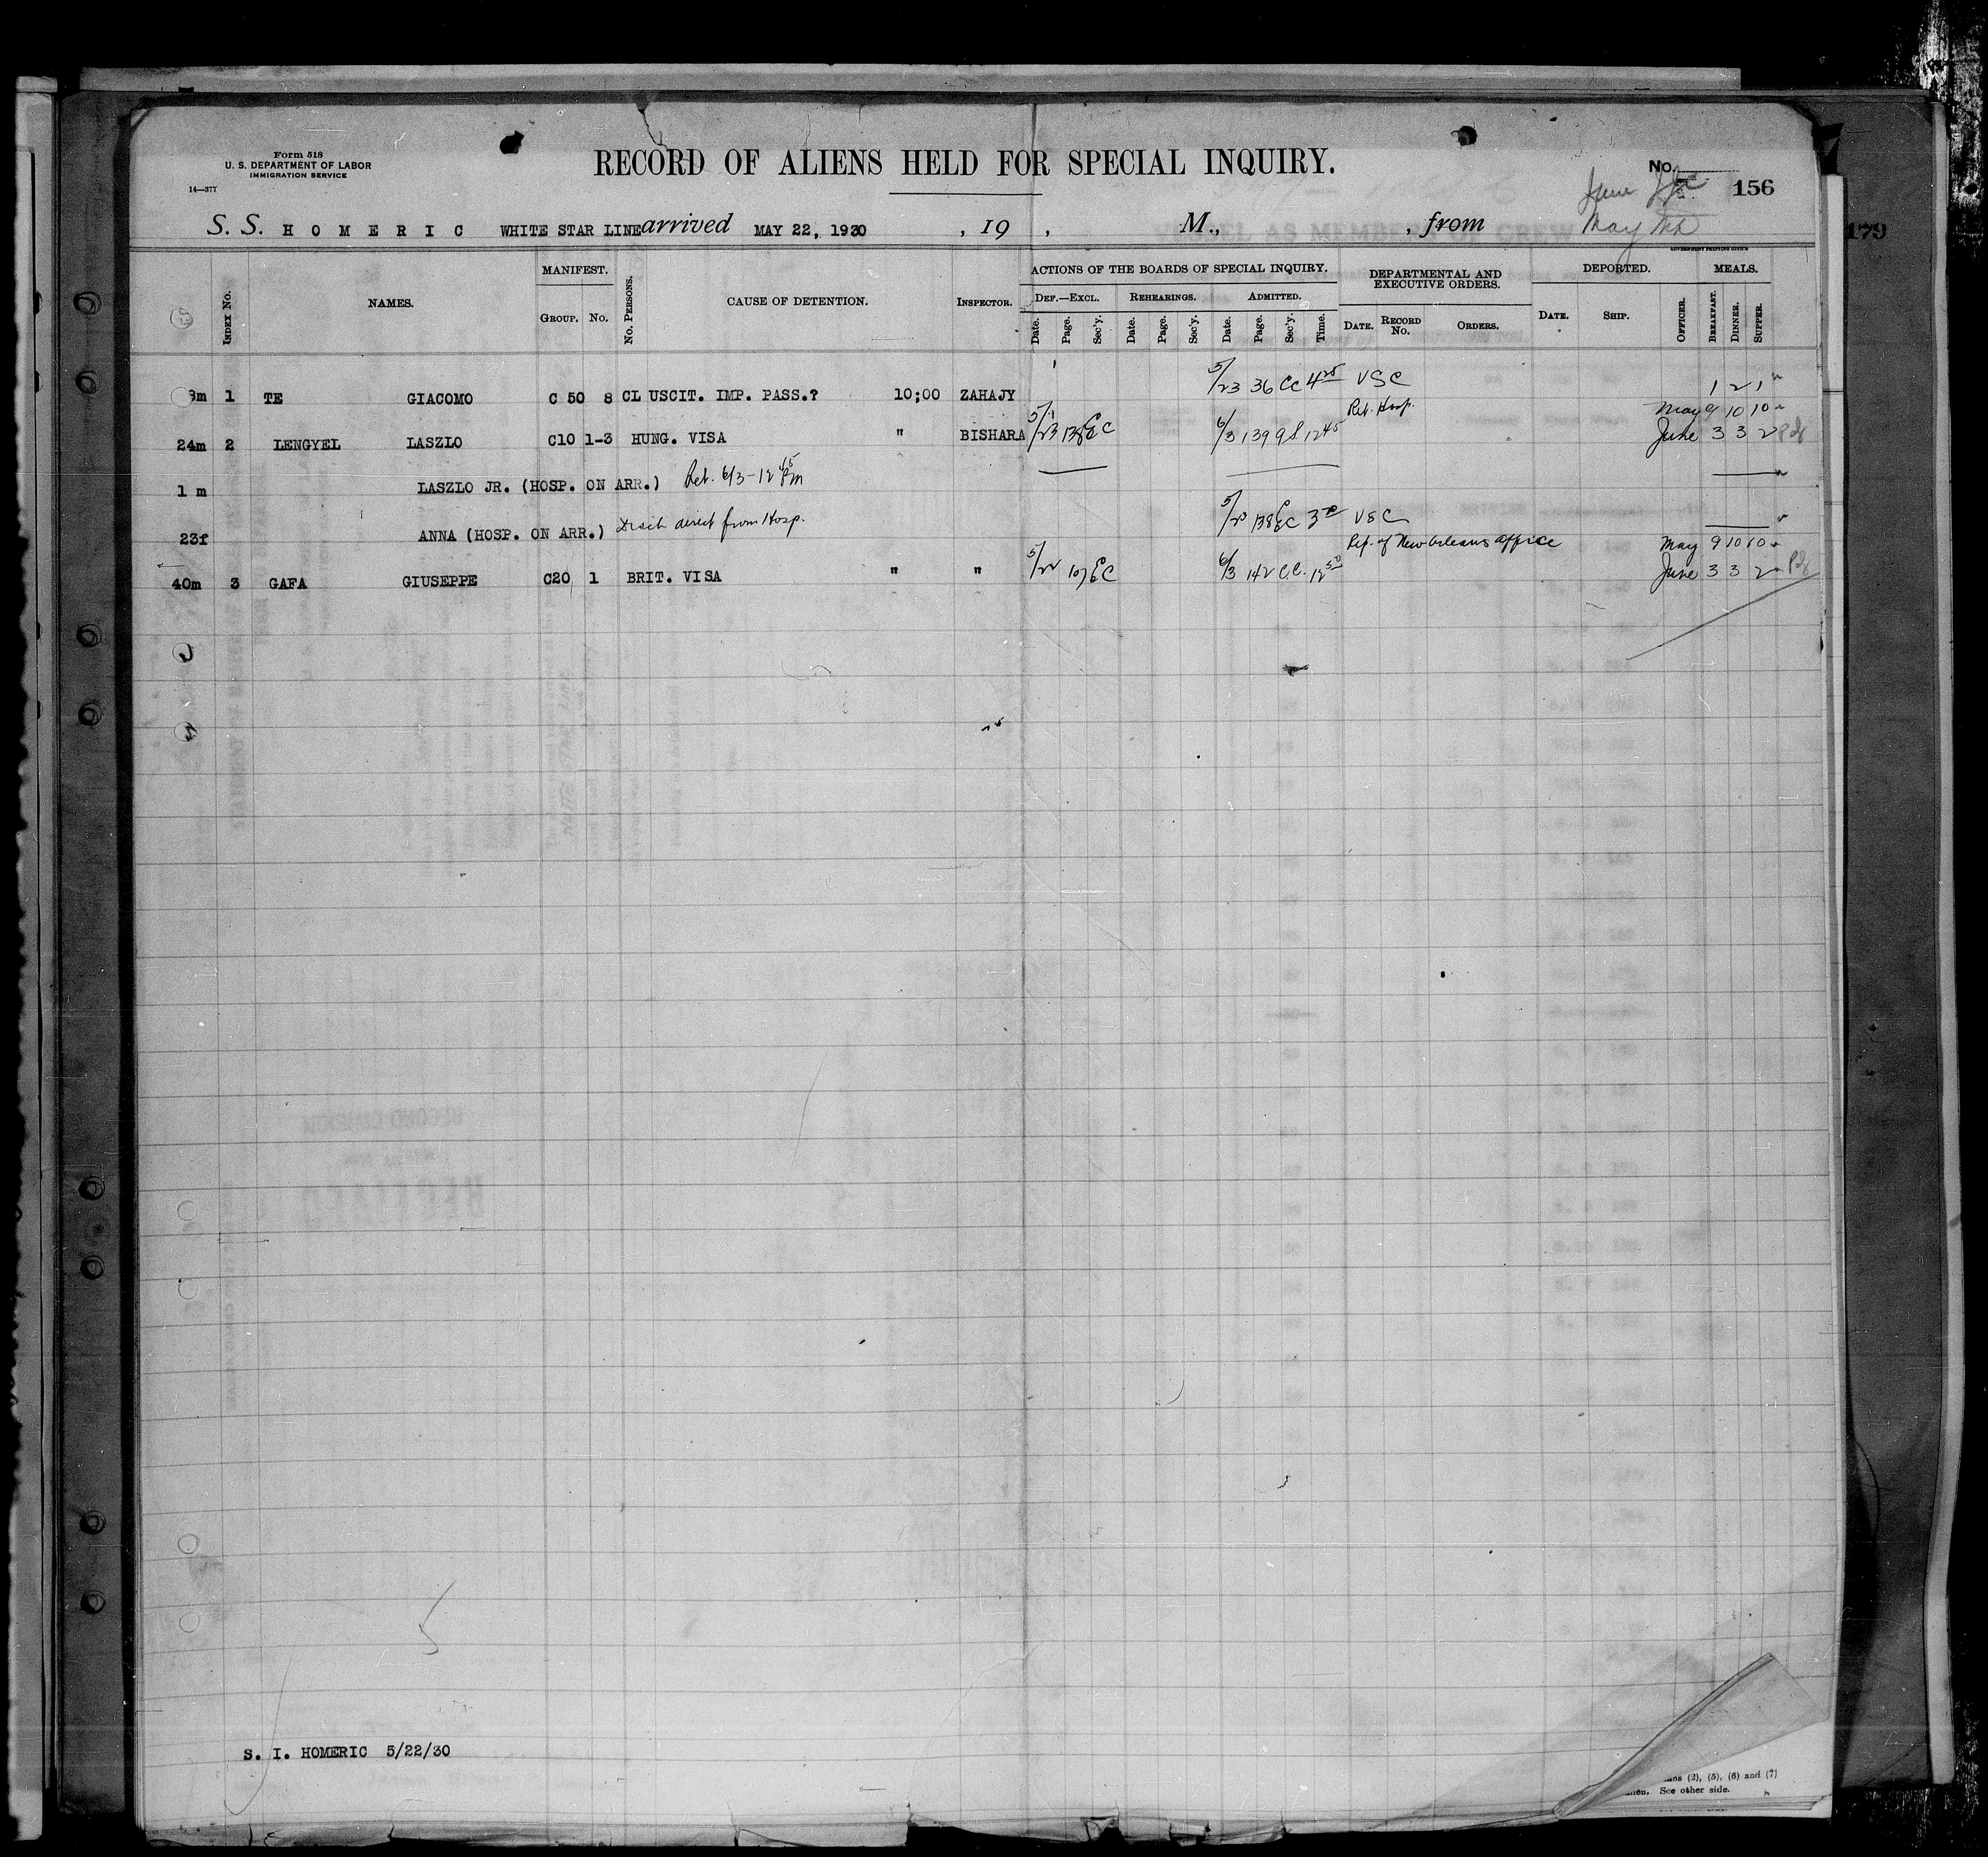 Form 518
U. S. DEPARTMENT OF LABOR
IMMIGRATION SERVICE
14—377
RECORD OF ALIENS HELD FOR SPECIAL INQUIRY.
No. 156
179
S. S. H O M E R I C WHITE STAR LINE arrived MAY 22, 1930 , 19 , M., , from
GOVERNMENT PRINTING OFFICE
INDEX No. NAMES. MANIFEST. GROUP. No. No. PERSONS. CAUSE OF DETENTION. INSPECTOR. ACTIONS OF THE BOARDS OF SPECIAL INQUIRY. DEPARTMENTAL AND EXECUTIVE ORDERS. DEPORTED. MEALS.
DEF.—EXCL. REHEARINGS. ADMITTED.
Date. Page. Sec'y. Date. Page. Sec'y. Date. Page. Sec'y. Time. DATE. RECORD No. ORDERS. DATE. SHIP. OFFICER. BREAKFAST. DINNER. SUPPER.
8m 1 TE GIACOMO C 50 8 CL USCIT. IMP. PASS.? 10;00 ZAHAJY 5/23 36 CC 4 25 VSC 1 2 1
Ret. Hosp. May 9 10 10
24m 2 LENGYEL LASZLO C10 1-3 HUNG. VISA " BISHARA 5/23 138 EC 6/3 139 12 45 June 3 3 2
1 m LASZLO JR. (HOSP. ON ARR.) Ret. 6/3-12 45 PM
23f ANNA (HOSP. ON ARR.) Disch direct from Hosp. 5/23 138 EC VSC
Rep. of New Orleans Office May 9 10 10
40m 3 GAFA GIUSEPPE C20 1 BRIT. VISA " " 5/22 107 EC 6/3 142 C.C. 12 50 June 3 3 2
S. I. HOMERIC 5/22/30
(2), (5), (6) and (7)
See other side.